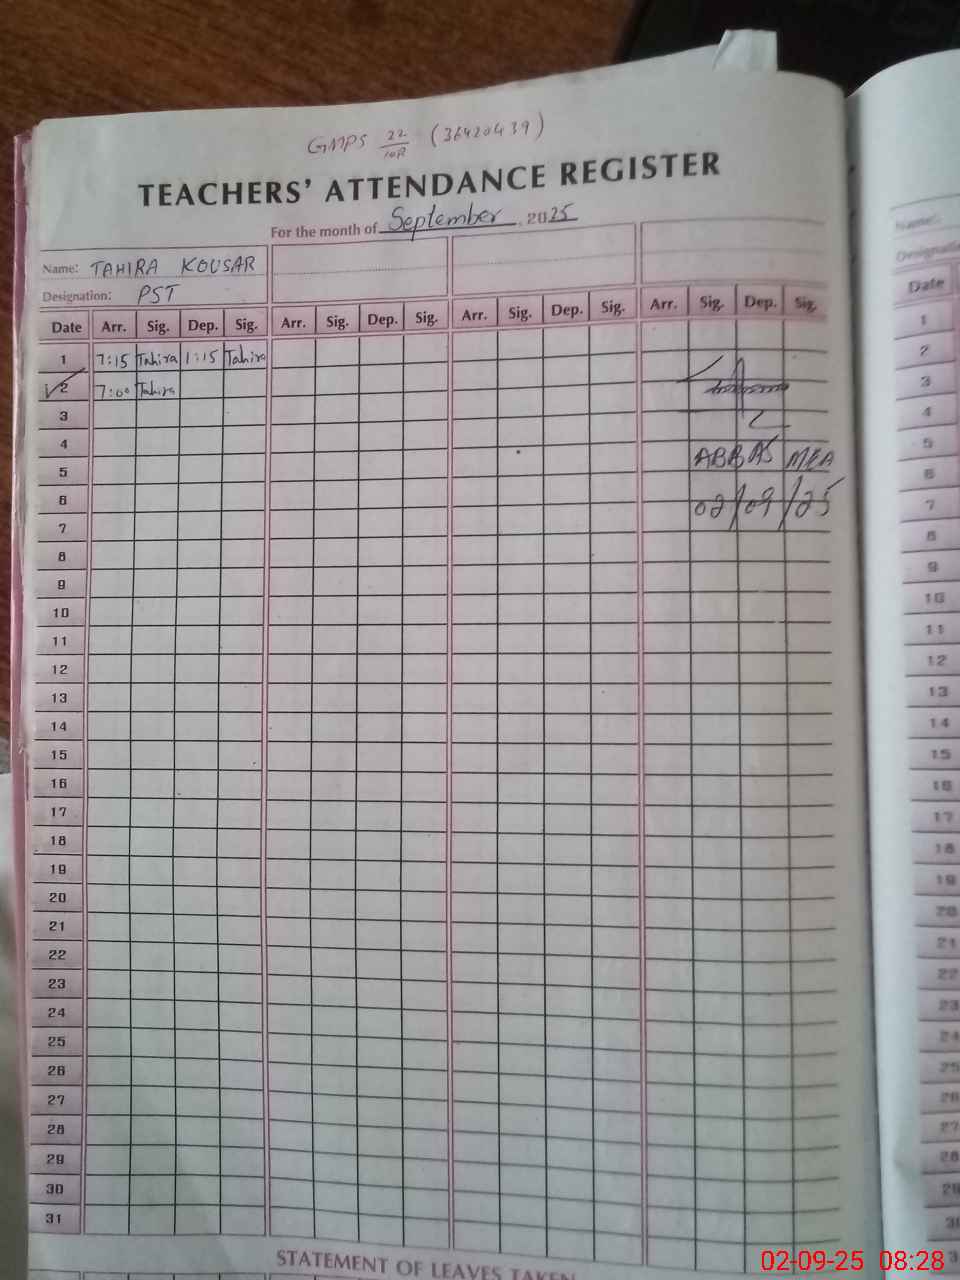 GMPS 22/10R (36420439)
TEACHERS' ATTENDANCE REGISTER
For the month of September, 2025
Name: TAHIRA KOUSAR
Designation: PST
Date Arr. Sig. Dep. Sig. Arr. Sig. Dep. Sig. Arr. Sig. Dep. Sig. Arr. Sig. Dep. Sig.
1 7:15 Tahira 1:15 Tahira
2 7:00 Tahira
3
4
5 ABBAS MEA
6
7 02/09/25
8
9
10
11
12
13
14
15
16
17
18
19
20
21
22
23
24
25
26
27
28
29
30
31
STATEMENT OF LEAVES TAKEN
Name:
Designati
Date
1
2
3
4
5
6
7
8
9
10
11
12
13
14
15
16
17
18
19
20
21
22
23
24
25
26
27
28
29
30
02-09-25 08:28